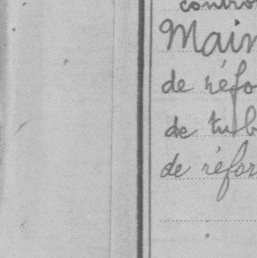 contro
Main
de réfo
de tub
de réfor